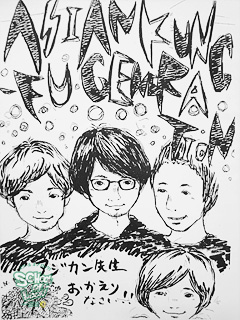 ASIAN KUNG
-FU GENERA
TION
アジカン先生
おかえり
なさい!!